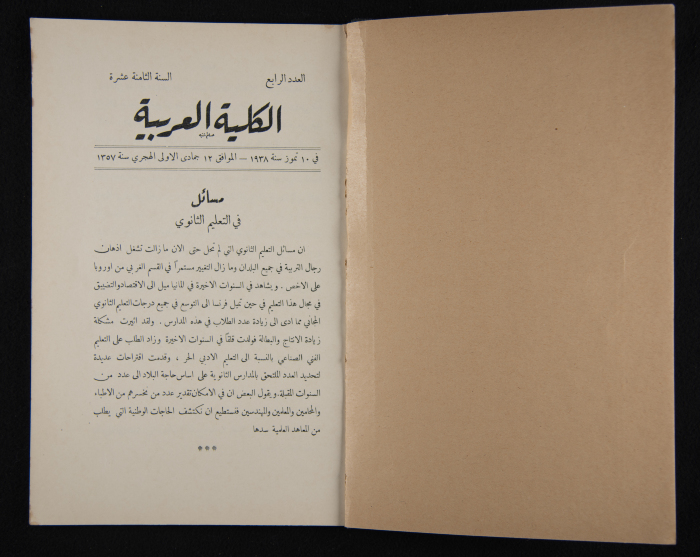 العدد الرابع
السنة الثامنة عشرة
الكلية العربية
في ١٠ تموز سنة ١٩٣٨ – الموافق ١٢ جمادى الاولى الهجري سنة ١٣٥٧
مسائل
في التعليم الثانوي
ان مسائل التعليم الثانوي التي لم تحل حتى الان ما زالت تشغل اذهان
رجال التربية في جميع البلدان وما زال التغيير مستمراً في القسم الغربي من اوروبا
على الاخص . ويشاهد في السنوات الاخيرة في المانيا ميل الى الاقتصاد والتضييق
في مجال هذا التعليم في حين تميل فرنسا الى التوسع في جميع درجات التعليم الثانوي
المجاني مما ادى الى زيادة عدد الطلاب في هذه المدارس . ولقد اثيرت مشكلة
زيادة الانتاج والبطالة فولدت قلقاً في السنوات الاخيرة وزاد الطلب على التعليم
الفني الصناعي بالنسبة الى التعليم الادبي الحر ، وقدمت اقتراحات عديدة
لتحديد العدد الملتحق بالمدارس الثانوية على اساس حاجة البلاد الى عدد من
السنوات المقبلة . ويقول البعض ان في الامكان تقدير عدد من نخسرهم من الاطباء
والمحامين والمعلمين والمهندسين فنستطيع ان نكتشف الحاجات الوطنية التي يطلب
من المعاهد العلمية سدها
***